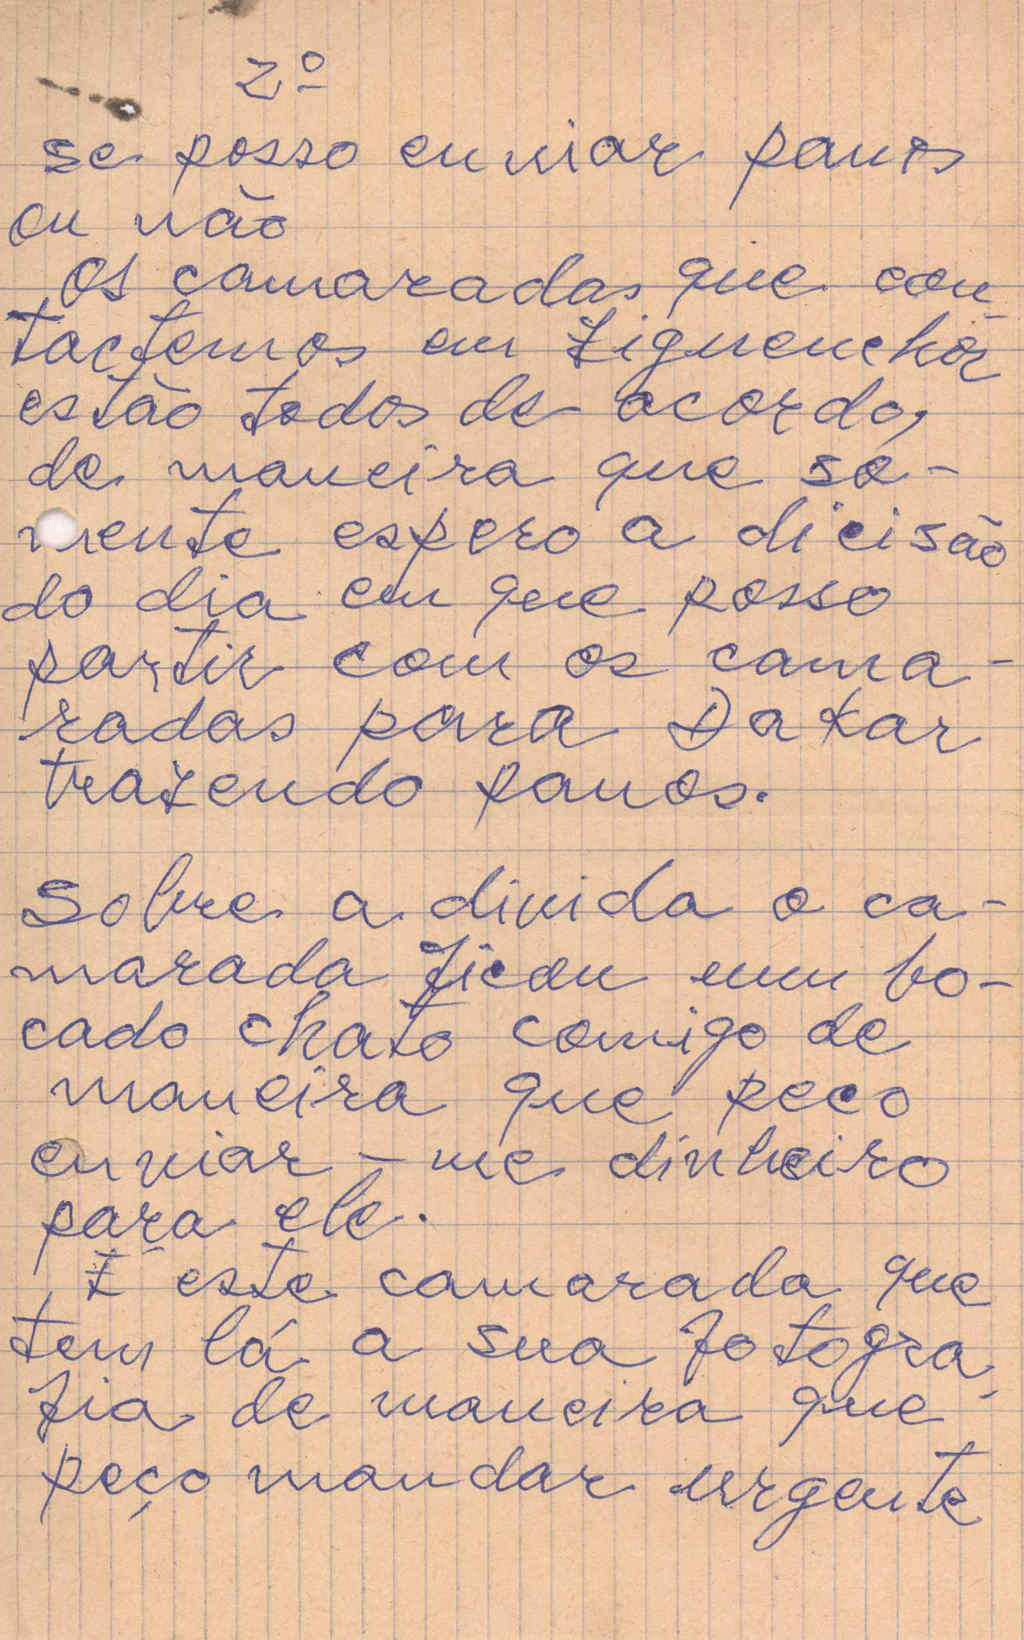 2º
se posso enviar panos
ou não
Os camaradas que con-
tactemos em Ziguenchôr
estão todos de acordo,
de maneira que sò-
mente espero a dicisão
do dia em que posso
partir com os cama-
radas para Dakar
trazendo panos.
Sobre a divida o ca-
marada ficou num bo-
cado chato comigo de
maneira que peco
enviar-me dinheiro
para ele.
E este camarada que
tem lá a sua fotogra-
fia de maneira que
peço mandar urgente